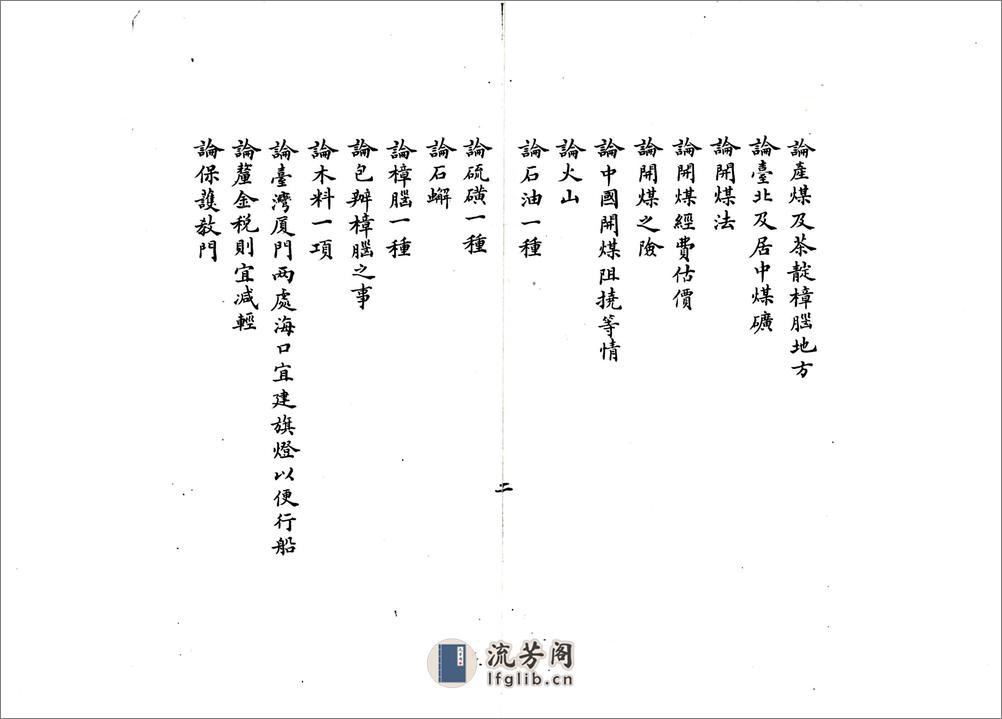 論產煤及茶靛樟腦地方
論臺北及居中煤礦
論開煤法
論開煤經費估價
論開煤之險
論中國開煤阻撓等情
論火山
論石油一種
二
論硫磺一種
論石蠏
論樟腦一種
論包辦樟腦之事
論木料一項
論臺灣厦門兩處海口宜建旗燈以便行船
論釐金稅則宜減輕
論保護教門
流芳阁
lfglib.cn